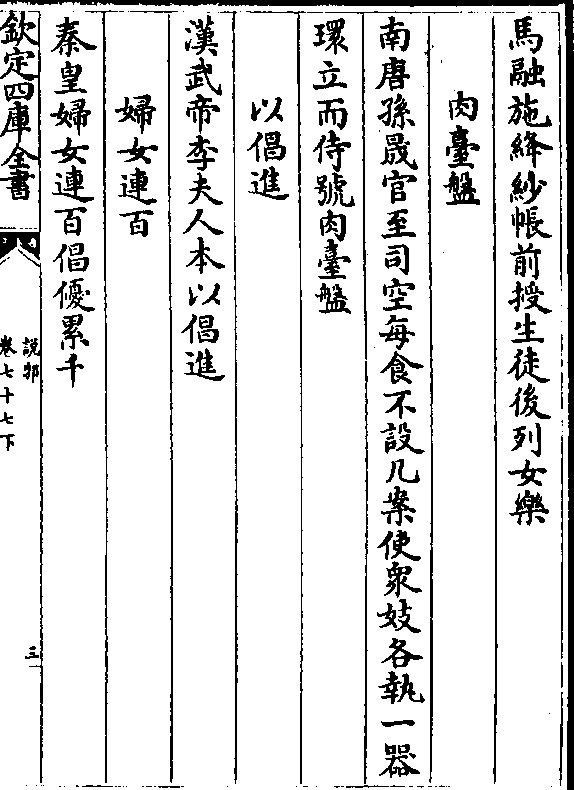 馬融施絳紗帳前授生徒後列女樂
肉臺盤
南唐孫晟官至司空每食不設几案使衆妓各執一器
環立而侍號肉臺盤
以倡進
漢武帝李夫人本以倡進
婦女連百
秦皇婦女連百倡優累千
欽定四庫全書
說郛
卷七十七下
三